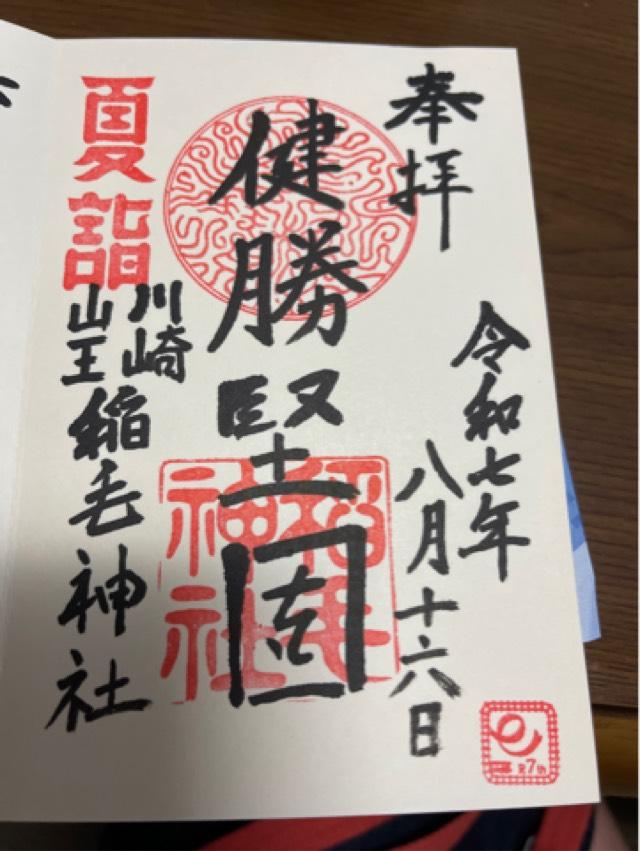 奉拝
令和七年
八月十六日
健勝堅固
稲毛
神社
夏詣
川崎
山王
稲毛神社
7th